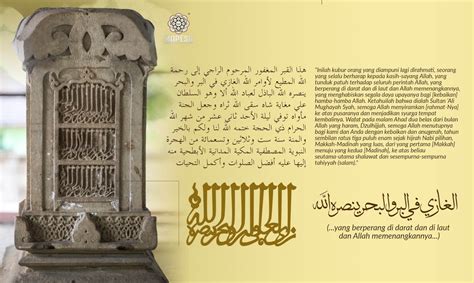 MAPESA
هذا القبر المغفور المرحوم الراجي إلى رحمة
الله المطيع لأوامر الله الغازي في البر والبحر
ينصره الله الباذل لعباد الله ألا وهو السلطان
علي مغاية شاه سقى الله ثراه وجعل الجنة
مأواه توفي ليلة الأحد ثاني عشر من شهر الله
الحرام ذي الحجة ختمه الله لنا ولكم بالخير
والمنة سنة ست وثلاثين وتسعمائة من الهجرة
النبوية المصطفية المكية المدنية الأبطحية منه
إليها عليه أفضل الصلوات وأكمل التحيات
"Inilah kubur orang yang diampuni lagi dirahmati, seorang
yang selalu berharap kepada kasih-sayang Allah, yang
tunduk patuh terhadap seluruh perintah Allah, yang
berperang di darat dan di laut dan Allah memenangkannya,
yang menghabiskan segala daya upayanya bagi [kebaikan]
hamba-hamba Allah. Ketahuilah bahwa dialah Sultan 'Ali
Mughayah Syah, semoga Allah menyiramkan [rahmat-Nya]
ke atas pusaranya dan menjadikan syurga tempat
kembalinya. Wafat pada malam Ahad dua belas dari bulan
Allah yang haram, Dzulhijjah, semoga Allah menutupnya
bagi kami dan Anda dengan kebaikan dan anugerah, tahun
sembilan ratus tiga puluh enam sejak hijrah Nabi pilihan,
Makkah-Madinah yang luas, dari yang pertama [Makkah]
menuju yang kedua [Madinah], ke atas beliau
seutama-utama shalawat dan sesempurna-sempurna
tahiyyah (salam)."
الغازي في البر والبحر ينصره الله
(...yang berperang di darat dan di laut
dan Allah memenangkannya...)